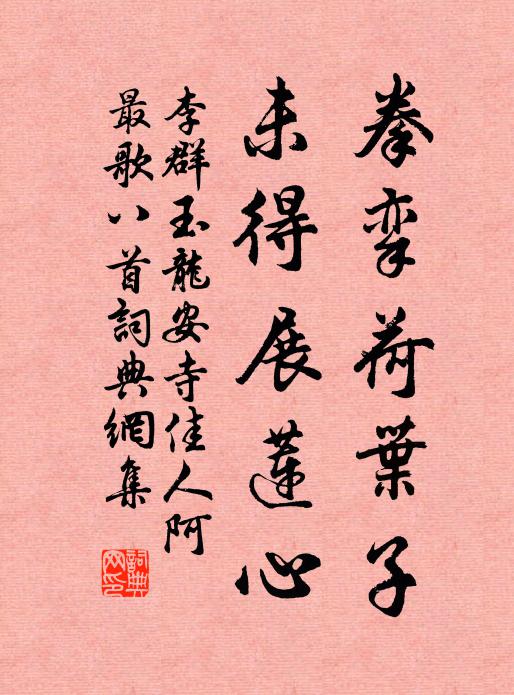 拳挛荷葉子
未得展蓮心
李群玉龍安寺佳人阿
最歌八首詞典網集
詞典网印